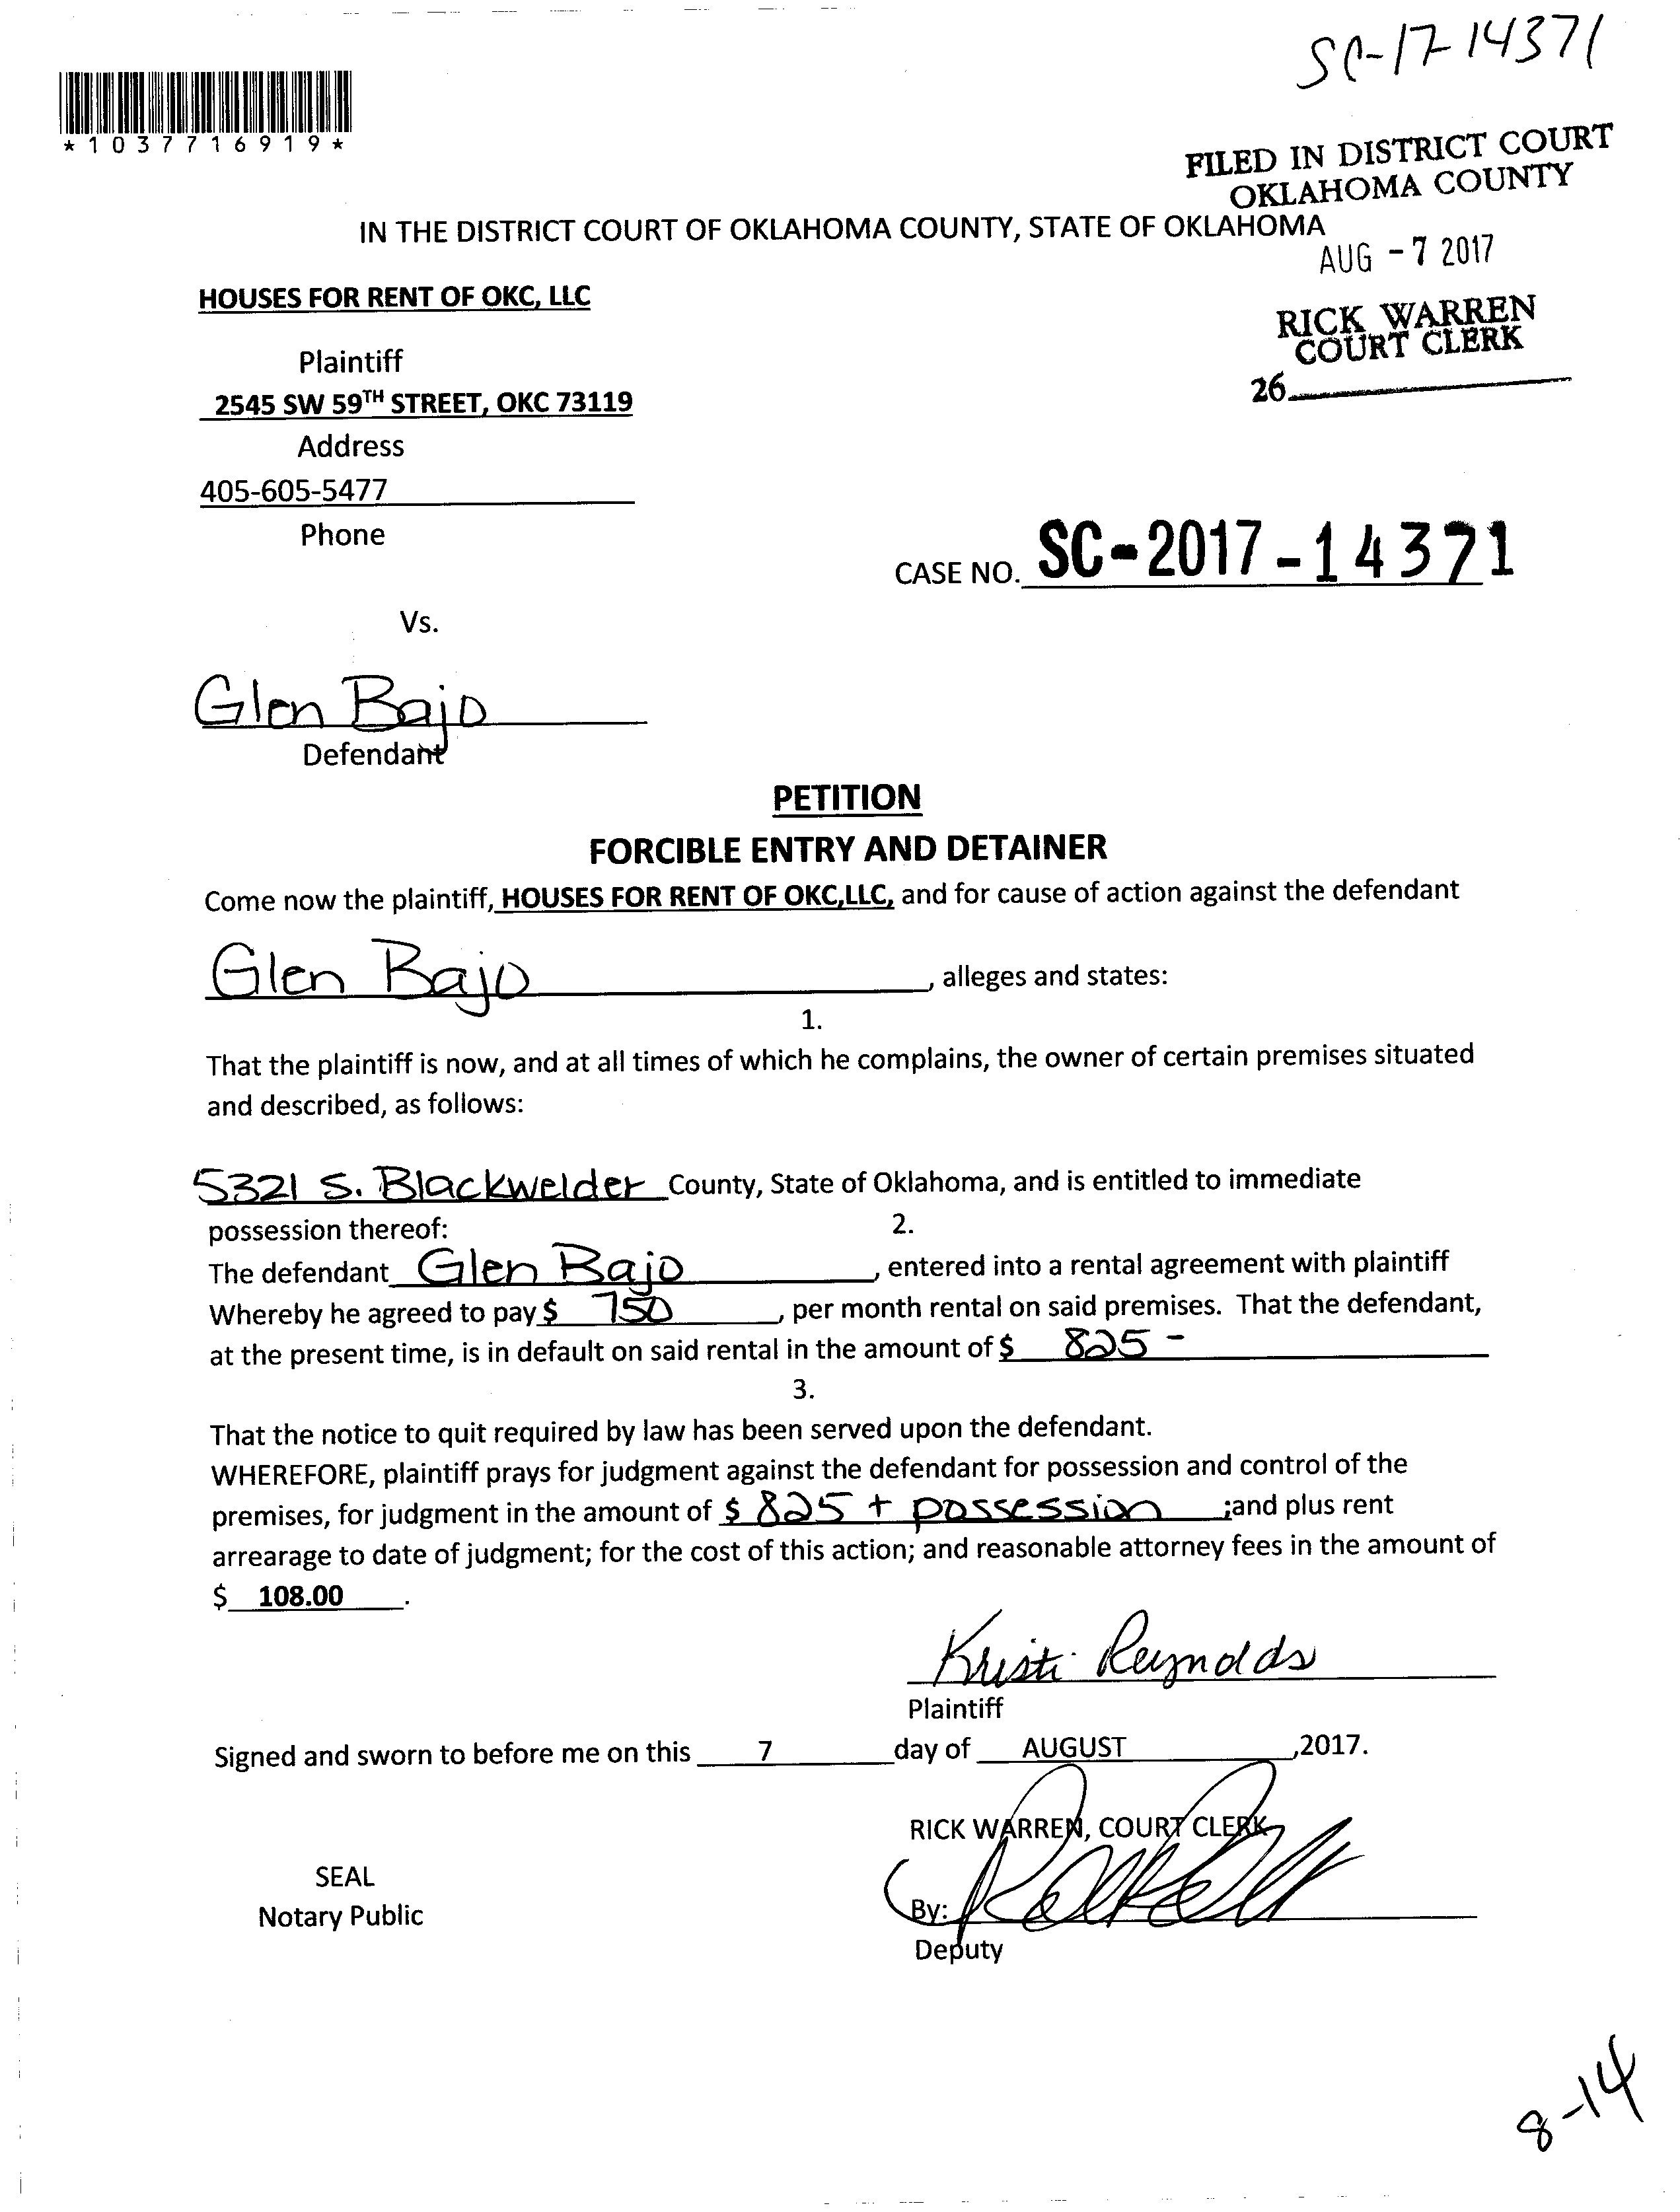 SC-17-14371
*1037716919*
FILED IN DISTRICT COURT
OKLAHOMA COUNTY
IN THE DISTRICT COURT OF OKLAHOMA COUNTY, STATE OF OKLAHOMA
AUG - 7 2017
HOUSES FOR RENT OF OKC, LLC
RICK WARREN
COURT CLERK
Plaintiff
26
2545 SW 59TH STREET, OKC 73119
Address
405-605-5477
Phone
CASE NO. SC-2017-14371
Vs.
Glen Bajo
Defendant
PETITION
FORCIBLE ENTRY AND DETAINER
Come now the plaintiff, HOUSES FOR RENT OF OKC,LLC, and for cause of action against the defendant
Glen Bajo, alleges and states:
1.
That the plaintiff is now, and at all times of which he complains, the owner of certain premises situated
and described, as follows:
5321 S. Blackwelder County, State of Oklahoma, and is entitled to immediate
possession thereof:
2.
The defendant Glen Bajo, entered into a rental agreement with plaintiff
Whereby he agreed to pay $ 750, per month rental on said premises. That the defendant,
at the present time, is in default on said rental in the amount of $ 825 -
3.
That the notice to quit required by law has been served upon the defendant.
WHEREFORE, plaintiff prays for judgment against the defendant for possession and control of the
premises, for judgment in the amount of $ 825 + possession ;and plus rent
arrearage to date of judgment; for the cost of this action; and reasonable attorney fees in the amount of
$ 108.00 .
Kristi Reynolds
Plaintiff
Signed and sworn to before me on this 7 day of AUGUST ,2017.
RICK WARREN, COURT CLERK
SEAL
Notary Public
By:
Deputy
8-14